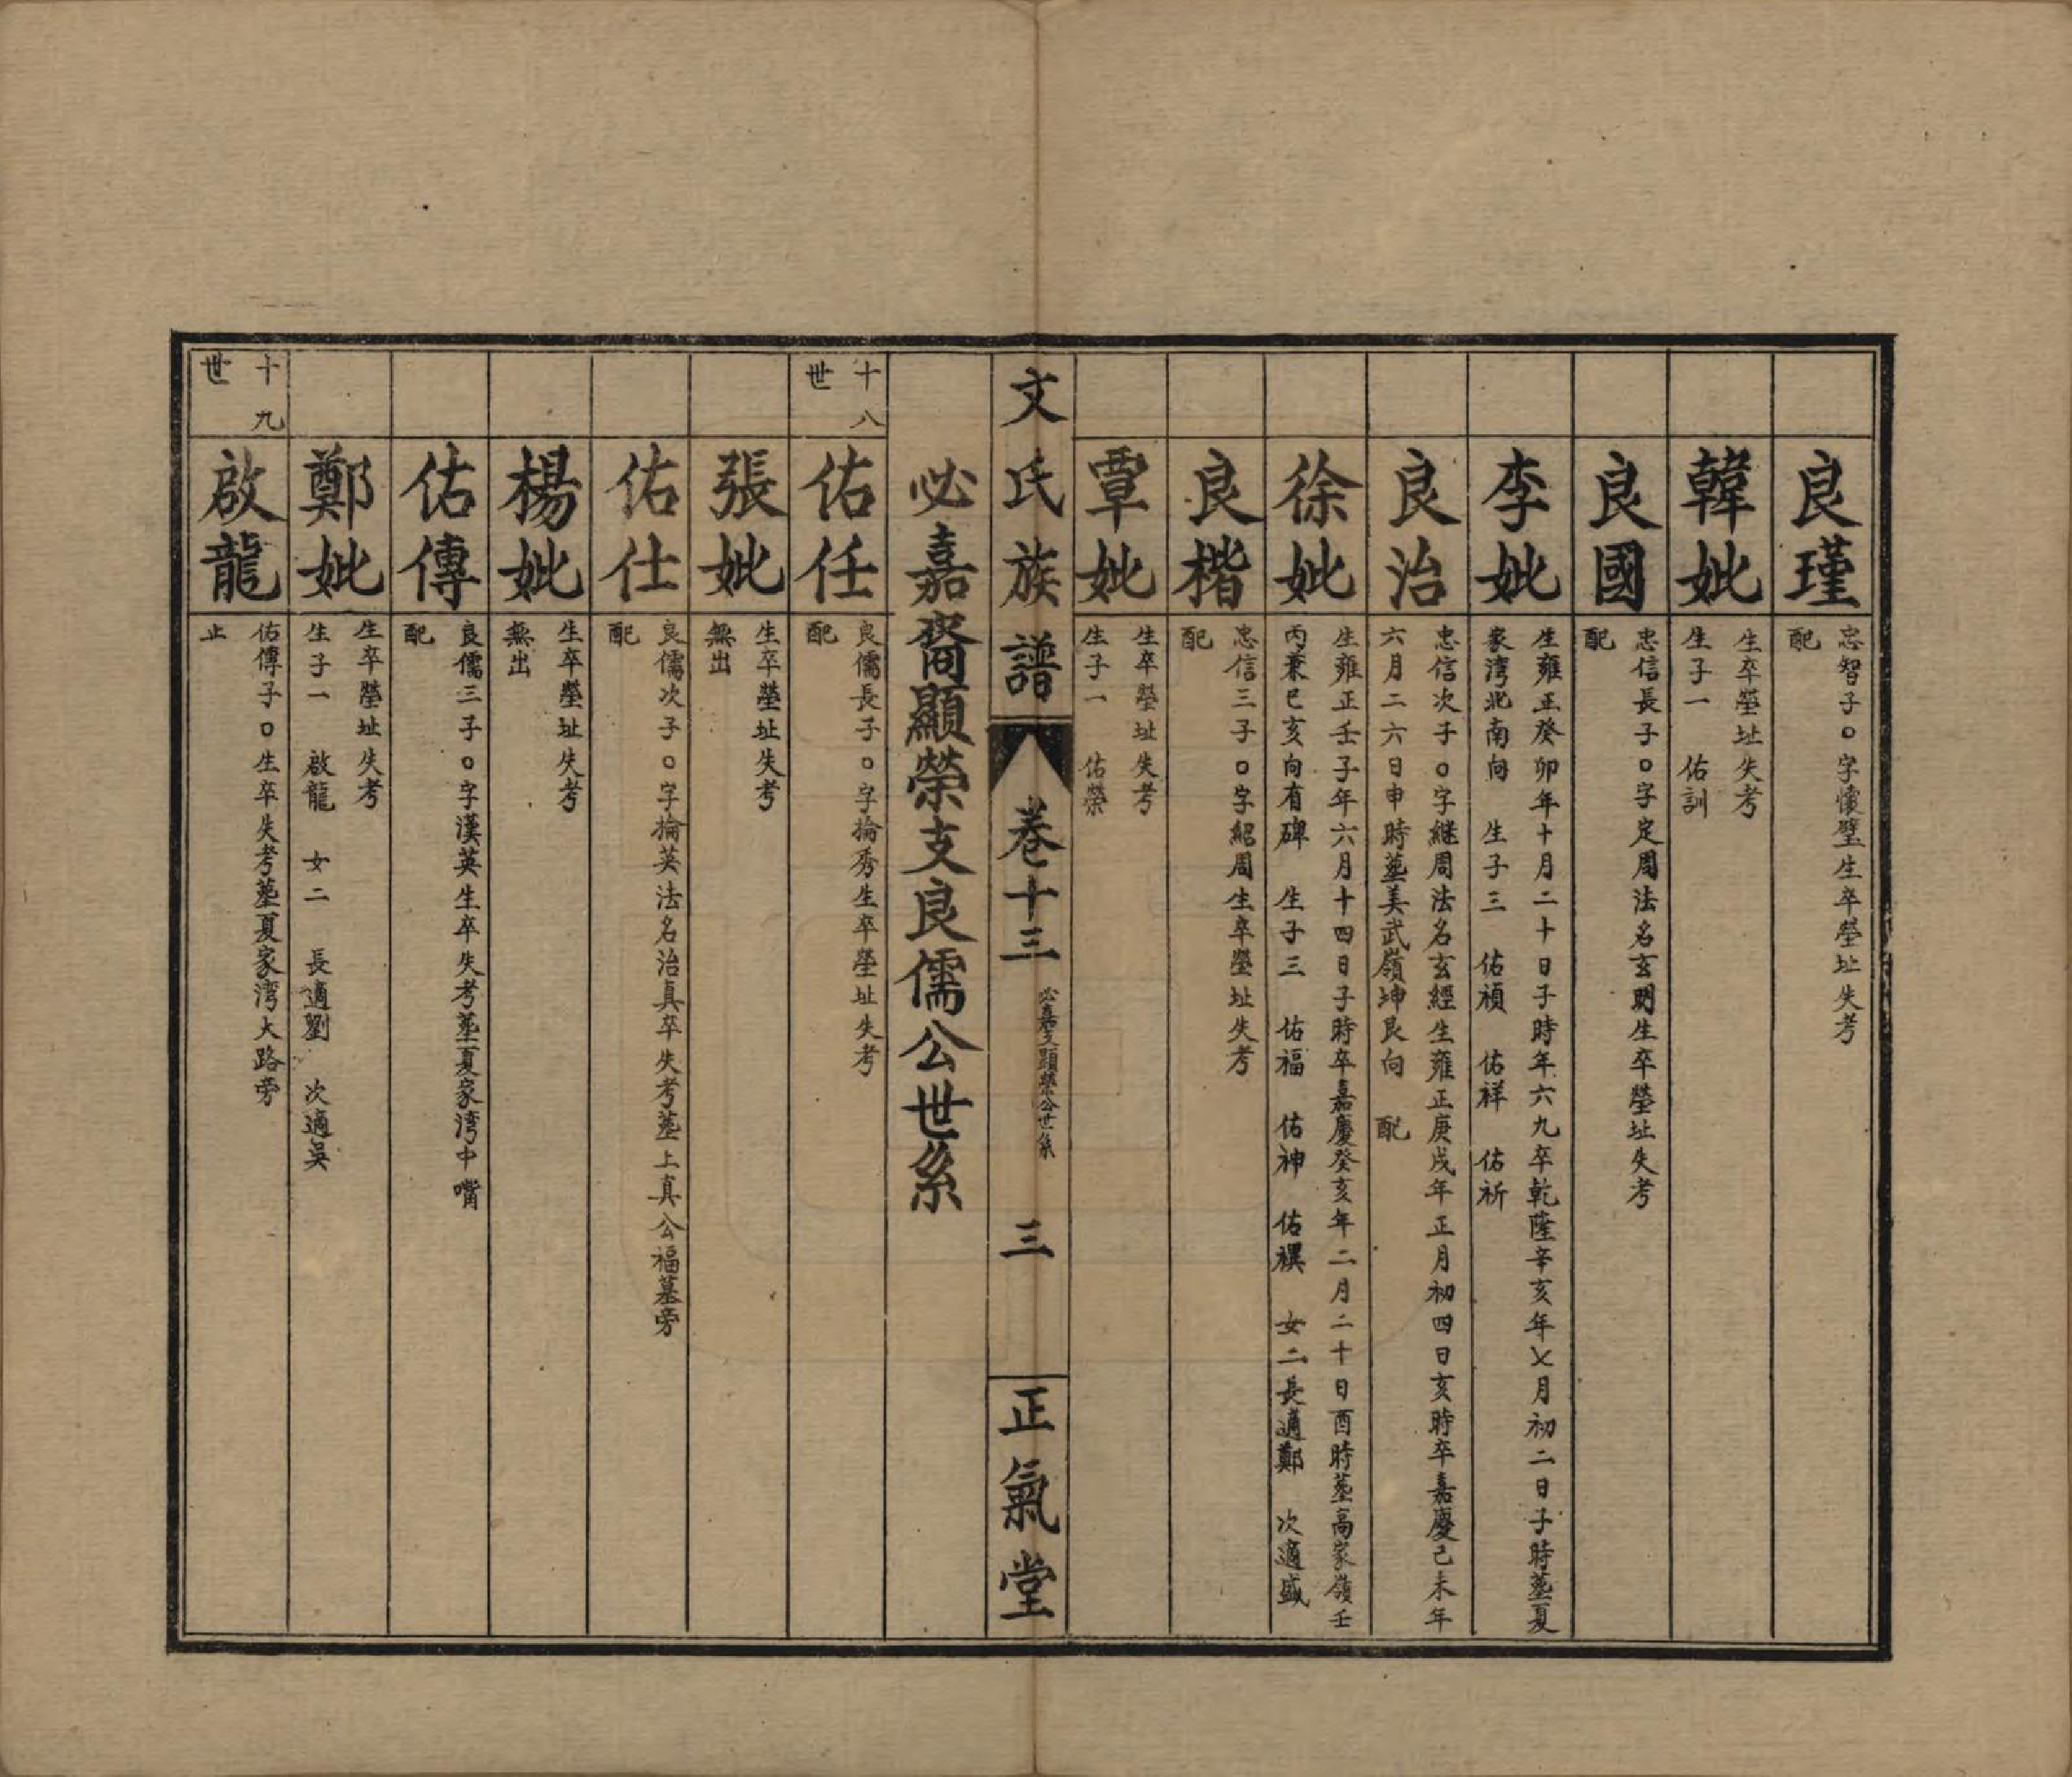 良瑾
忠智子○字懷璧生卒塋址失考
配
韓妣
生卒塋址失考
生子一 佑訓
良國
忠信長子○字定周法名玄明生卒塋址失考
配
李妣
生雍正癸卯年十月二十日子時年六九卒乾隆辛亥年乂月初二日子時塟夏
家湾北南向 生子三 佑禎 佑祥 佑祈
良治
忠信次子○字継周法名玄經生雍正庚戌年正月初四日亥時卒嘉慶己未年
六月二六日申時塟美武嶺坤艮向 配
徐妣
生雍正壬子年六月十四日子時卒嘉慶癸亥年二月二十日酉時塟高家嶺壬
丙兼巳亥向有碑 生子三 佑福 佑神 佑禩 女二長適鄭 次適盛
良楷
忠信三子○字紹周生卒塋址失考
配
覃妣
生卒塋址失考
生子一 佑榮
文氏族譜 卷十三 必嘉支顯榮公世系 三 正氣堂
必嘉裔顯榮支良儒公世系
十八世
佑任
良儒長子○字掄秀生卒塋址失考
配
張妣
生卒塋址失考
無出
佑仕
良儒次子○字掄英法名治真卒失考塟上真公福墓旁
配
楊妣
生卒塋址失考
無出
佑傳
良儒三子○字漢英生卒失考塟夏家湾中嘴
配
鄭妣
生卒塋址失考
生子一 啟龍 女二 長適劉 次適吳
十九世
啟龍
佑傳子○生卒失考塟夏家湾大路旁
止